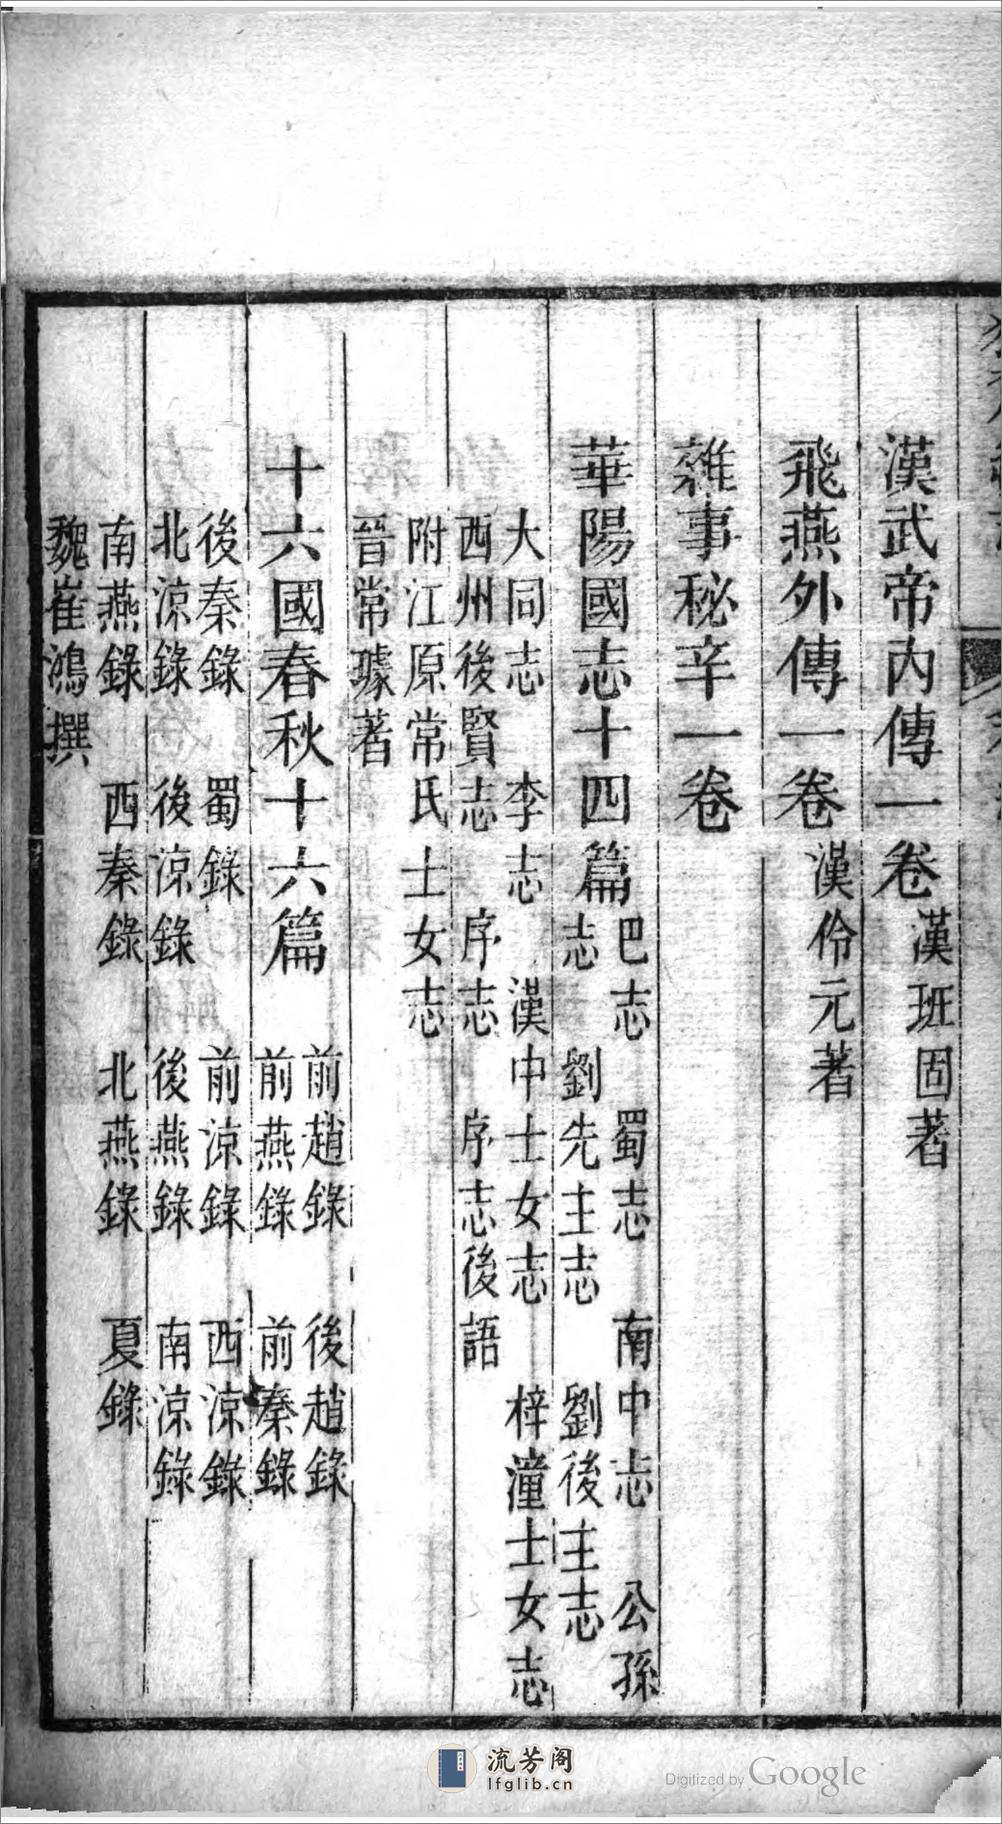 漢武帝內傳一卷 漢班固著
飛燕外傳一卷 漢伶元著
雜事秘辛一卷
華陽國志十四篇 巴志 蜀志 南中志 公孫
志 劉先主志 劉後主志
大同志 李志 漢中士女志 梓潼士女志
西州後賢志 序志 序志後語
附江原常氏士女志
晉常璩著
十六國春秋十六篇 前趙錄 後趙錄
前燕錄 前秦錄
後秦錄 蜀錄 前涼錄 西涼錄
北涼錄 後涼錄 後燕錄 南涼錄
南燕錄 西秦錄 北燕錄 夏錄
魏崔鴻撰
流芳阁
lfglib.cn
Digitized by Google